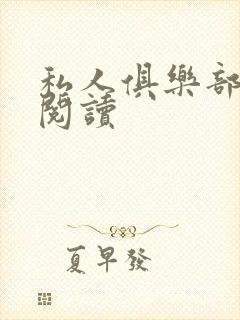 私人俱樂部
閱讀
夏早發